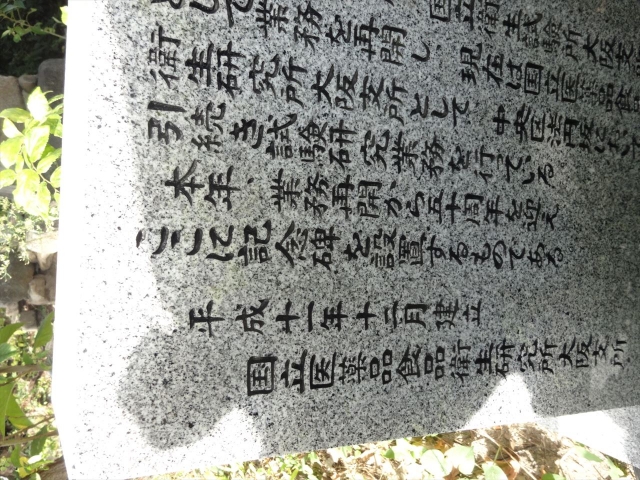 国立衛生試験所大阪支
として業務を再開し、現在は国立医薬品食
衛生研究所大阪支所として、中央区法円坂におい
引続き試験研究業務を行っている。
本年、業務再開から五十周年を迎え
ここに記念碑を設置するものである。
平成十一年十二月建立
国立医薬品食品衛生研究所大阪支所